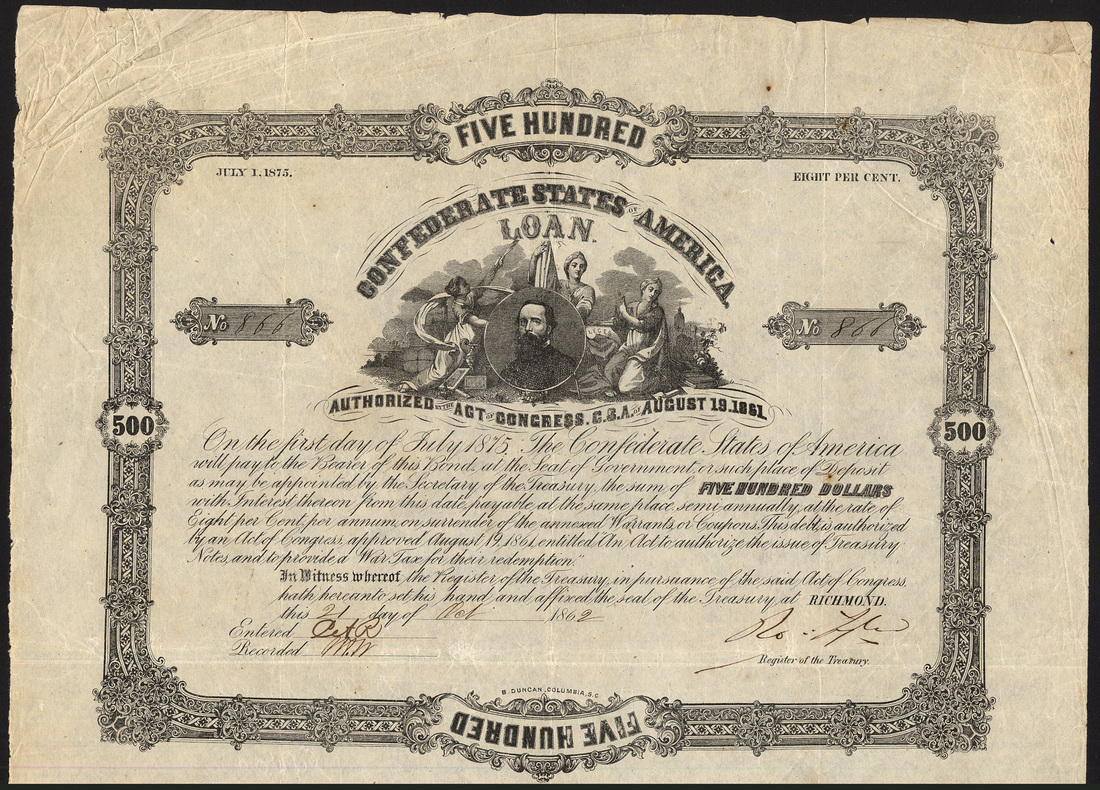 FIVE HUNDRED
JULY 1, 1875.
EIGHT PER CENT.
CONFEDERATE STATES OF AMERICA.
LOAN.
No 866
No 866
AUTHORIZED BY THE ACT OF CONGRESS, C.S.A. OF AUGUST 19. 1861.
500
500
On the first day of July 1875, The Confederate States of America
will pay to the Bearer of this Bond, at the Seat of Government, or such place of Deposit
as may be appointed by the Secretary of the Treasury, the sum of FIVE HUNDRED DOLLARS
with Interest thereon from this date, payable at the same place semi-annually, at the rate of
Eight per Cent, per annum, on surrender of the annexed Warrants, or Coupons. This debt, is authorized
by an Act of Congress, approved August 19, 1861, entitled "An Act to authorize the issue of Treasury
Notes, and to provide a War Tax for their redemption."
In Witness whereof the Register of the Treasury, in pursuance of the said Act of Congress,
hath hereunto set his hand and affixed the seal of the Treasury, at RICHMOND.
this 21 day of Oct 1862
Entered
Recorded
Register of the Treasury.
B. DUNCAN, COLUMBIA, S.C.
FIVE HUNDRED